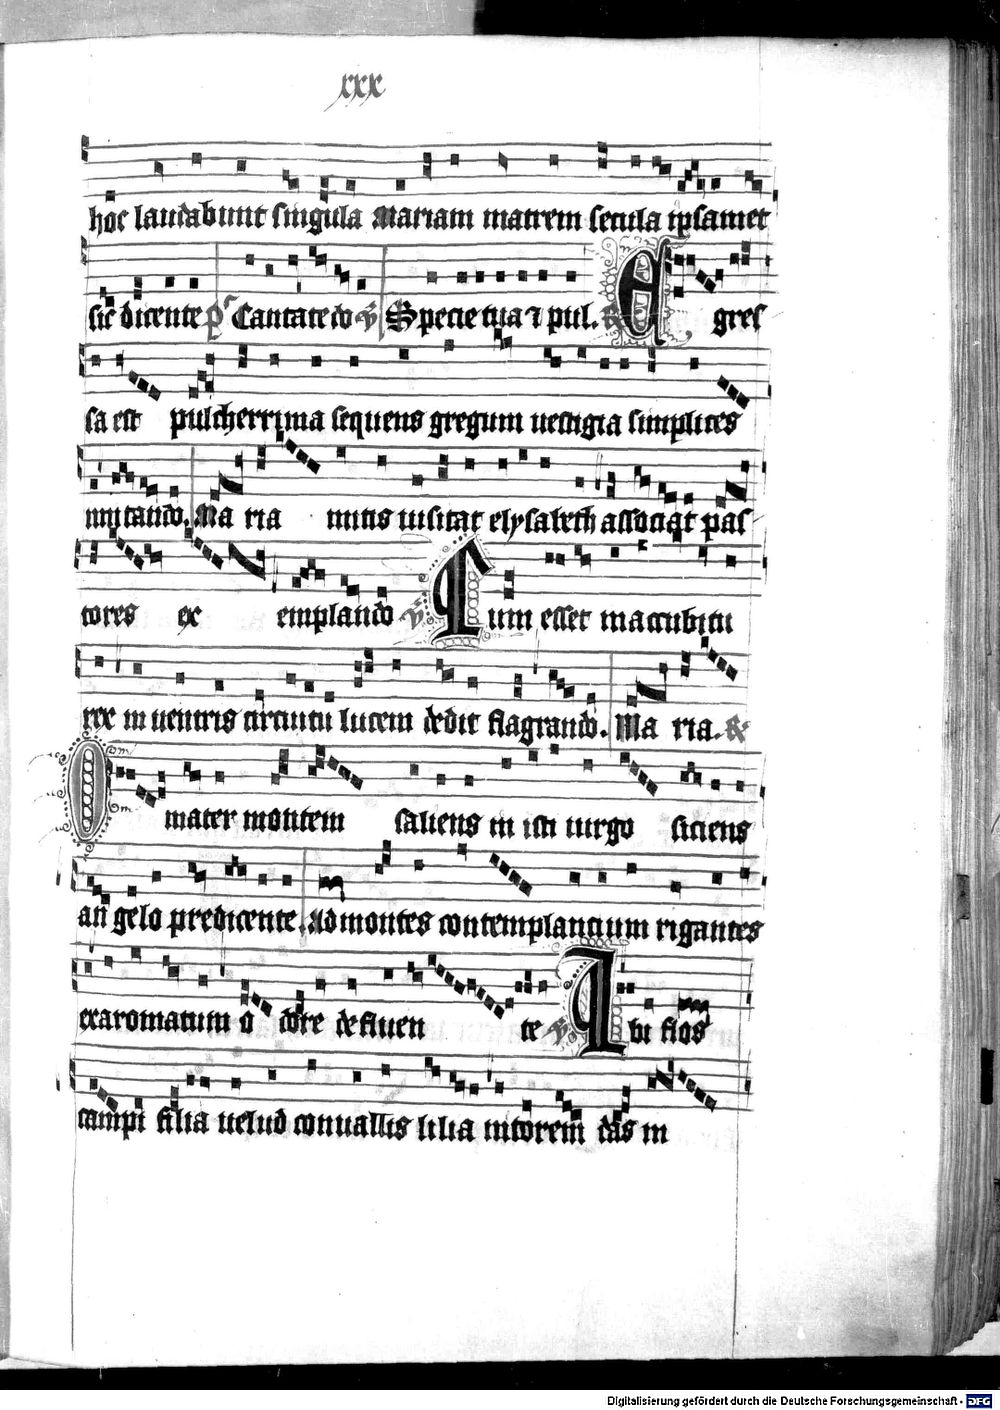 xxx
hoc laudabunt singula Mariam matrem secula ipsamet
sic dicente ps Cantate do v Specie tua ⁊ pul. R E gres
sa est pulcherrima sequens gregum uestigia simplices
mutando. Ma ria mitis uisitat elysabeth associat pas
tores ex emplando v Cum esset in accubitu
rex in uentris circuitu lucem dedit flagrando. Ma ria. R
O mater montem saliens in isti uirgo siciens
an gelo predicente. Ad montes contemplancium rigantes
ex aromatum o dore defluen te v U bi flos
campi filia uelud conuallis lilia in torem das in
Digitalisierung gefördert durch die Deutsche Forschungsgemeinschaft - DFG